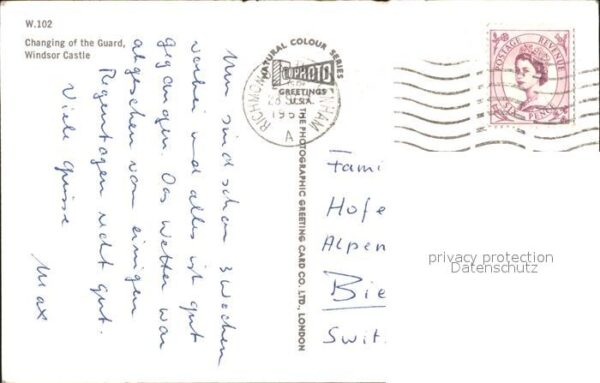 W.102
Changing of the Guard,
Windsor Castle
Nun sind schon 3 Wochen
vorbei und alles ist gut
gegangen. Das Wetter war
abgesehen von einigen
Regentagen recht gut.
Viele Grüsse
Max
NATURAL COLOUR SERIES
PHOTO
GREETINGS
U.S.A.
THE PHOTOGRAPHIC GREETING CARD CO. LTD., LONDON
RICHMOND
196
A
POSTAGE REVENUE
SIX PENCE
Fami
Hofe
Alpen
Bie
Swit.
privacy protection
Datenschutz